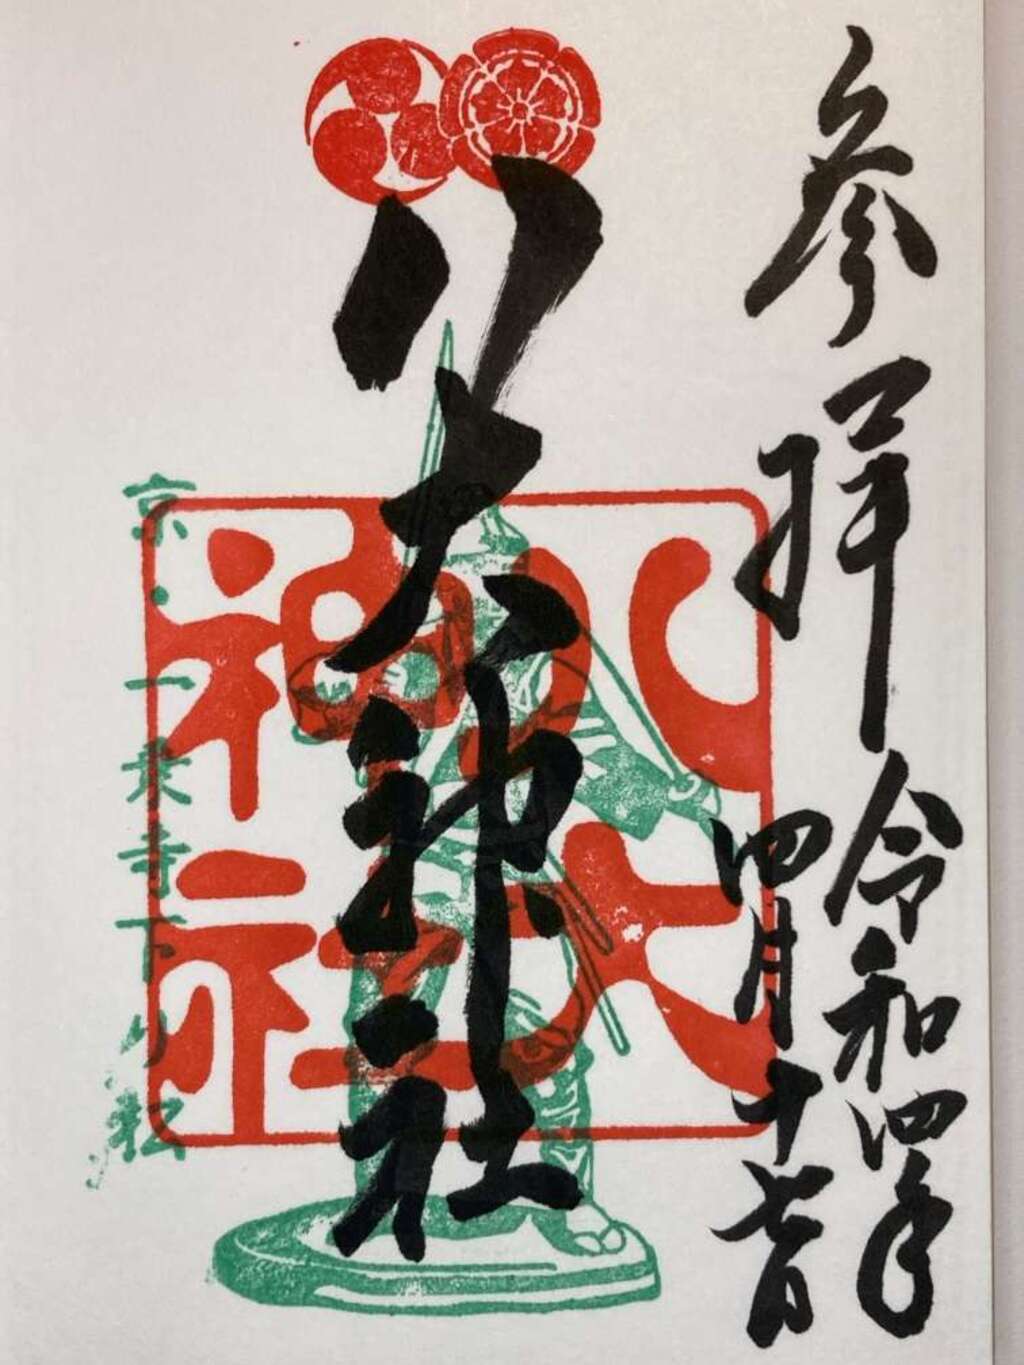 参拝
令和四年
四月十七日
八大神社
八大
神社
京・一乗寺下り松